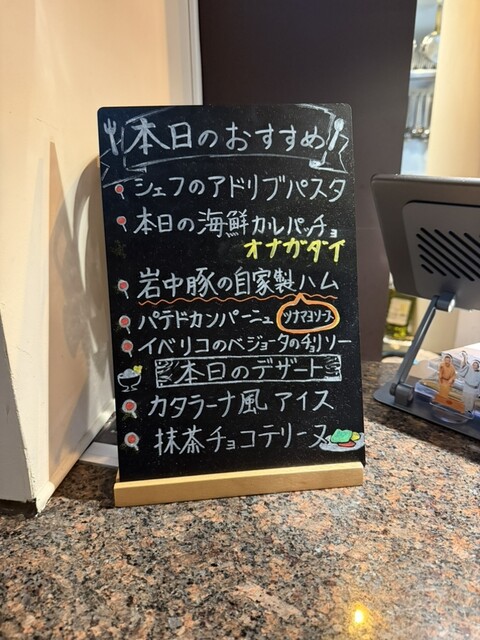 本日のおすすめ
シェフのアドリブパスタ
本日の海鮮カルパッチョ
オナガダイ
岩中豚の自家製ハム
ツナマヨソース
パテドカンパーニュ
イベリコのベジョータのチョリソー
本日のデザート
カタラーナ風アイス
抹茶チョコテリーヌ